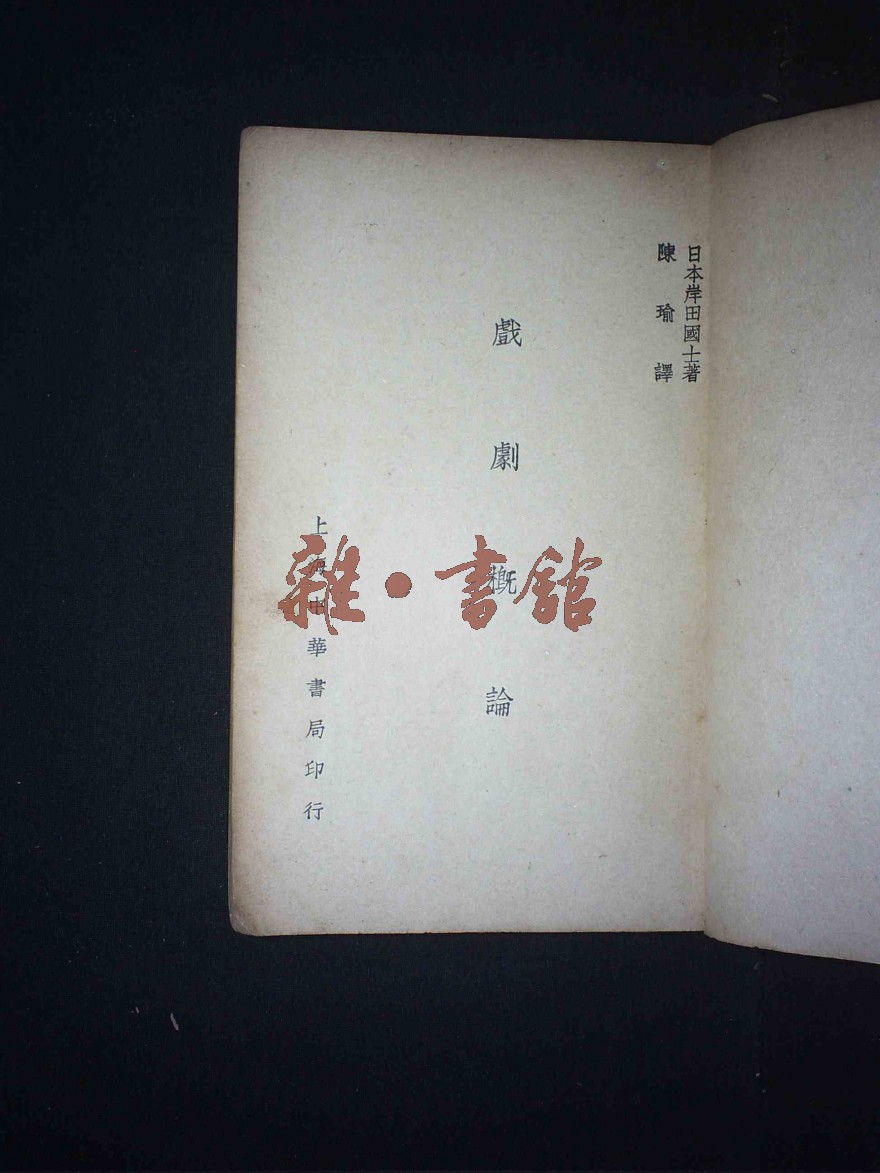 日本岸田國士著
陳瑜譯
戲劇概論
上海中華書局印行
雜·書館